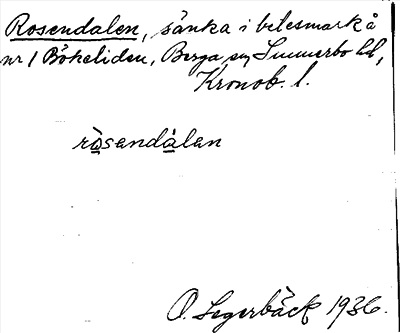 Rosendalen, sänka i betesmark å
nr 1 Bökeliden, Berga sn, Sunnerbo hd,
Kronob. l.
ròsendálen
O. Segerbäck 1936.